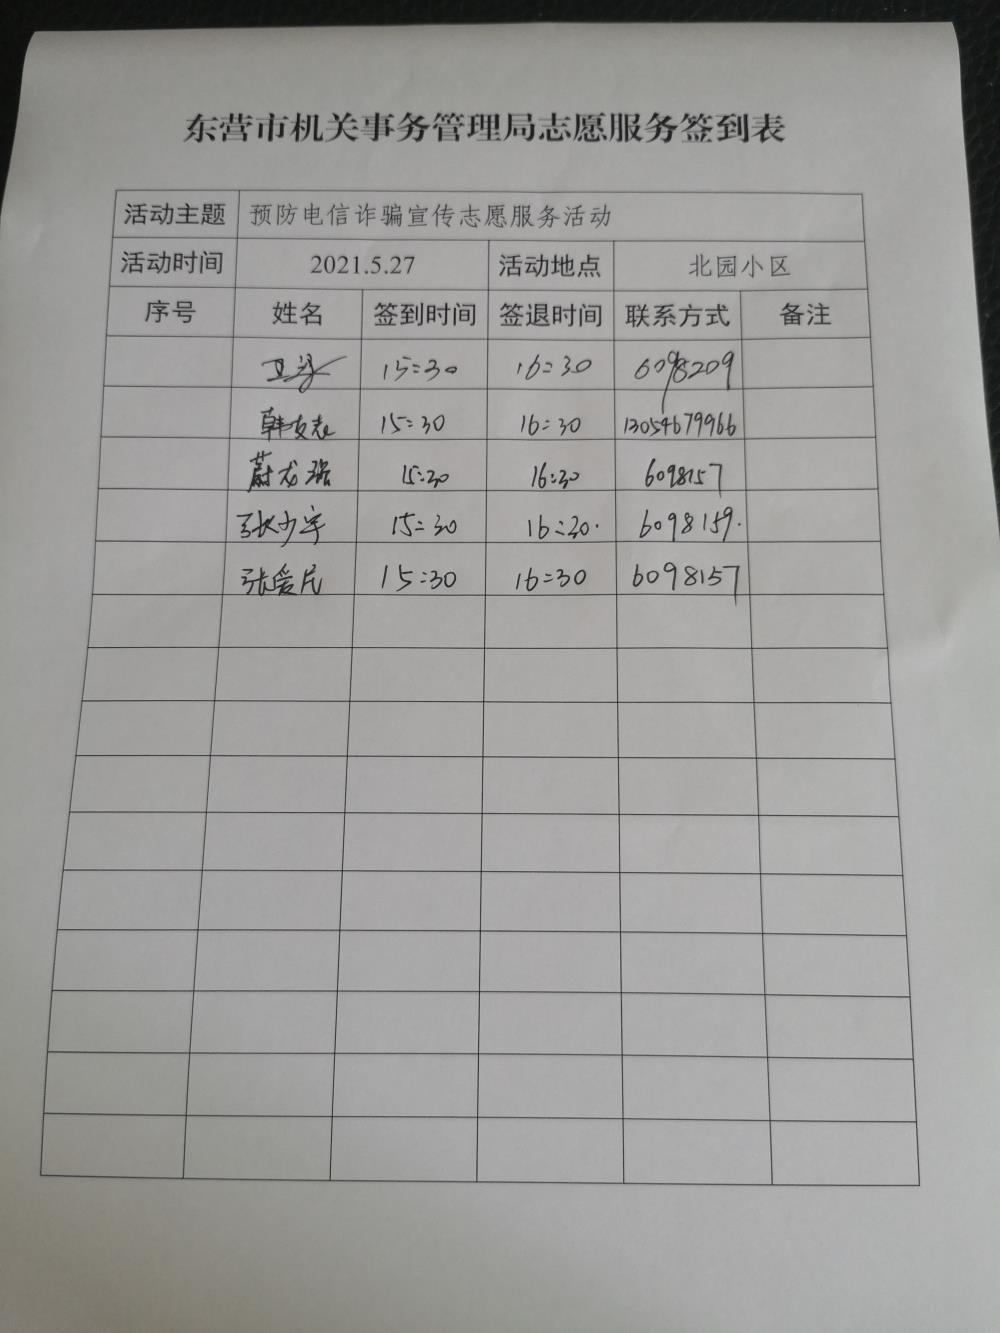 东营市机关事务管理局志愿服务签到表
活动主题 预防电信诈骗宣传志愿服务活动
活动时间 2021.5.27 活动地点 北园小区
序号 姓名 签到时间 签退时间 联系方式 备注
15:30 16:30 6098209
韩友志 15:30 16:30 13054679966
蔚龙 15:30 16:30 6098157
张少宇 15:30 16:30. 6098159.
张爱民 15:30 16:30 6098157